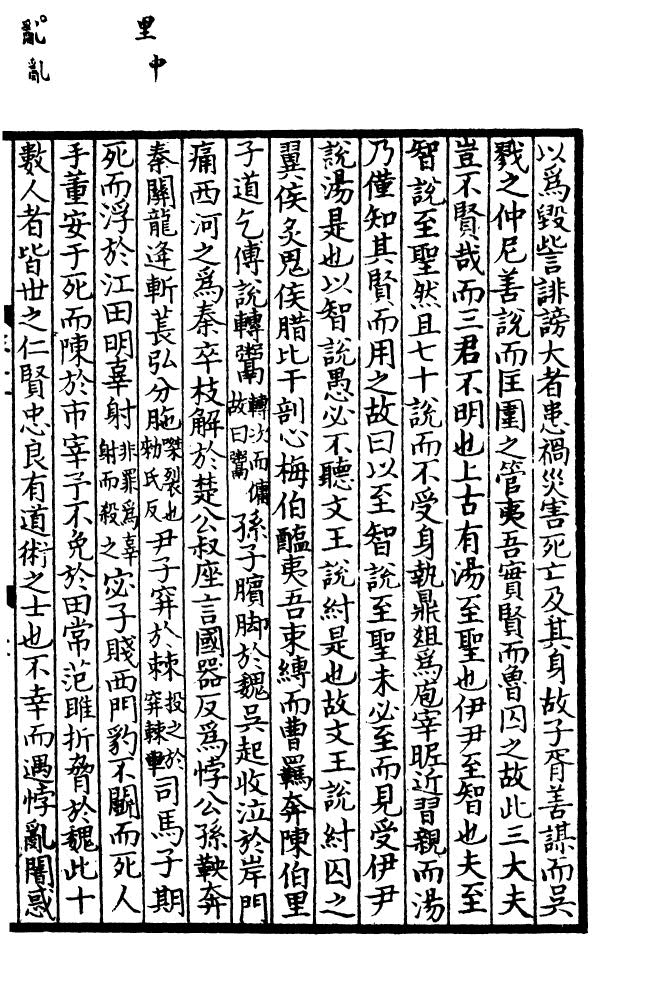 里中
亂亂
以爲毀訾誹謗大者患禍災害死亡及其身故子胥善謀而吳
戮之仲尼善說而匡圍之管夷吾實賢而魯囚之故此三大夫
豈不賢哉而三君不明也上古有湯至聖也伊尹至智也夫至
智說至聖然且七十說而不受身執鼎俎爲庖宰昵近習親而湯
乃僅知其賢而用之故曰以至智說至聖未必至而見受伊尹
說湯是也以智說愚必不聽文王說紂是也故文王說紂囚之
翼侯炙鬼侯腊比干剖心梅伯醢夷吾束縛而曹羈奔陳伯里
子道乞傅說轉鬻轉次而傭故曰鬻孫子臏脚於魏吳起收泣於岸門
痛西河之爲秦卒枝解於楚公叔座言國器反爲悖公孫鞅奔
秦關龍逄斬萇弘分胣磔裂也勑氏反尹子穽於棘投之於穽棘中司馬子期
死而浮於江田明辜射非罪爲辜射而殺之宓子賤西門豹不鬬而死人
手董安于死而陳於市宰予不免於田常范雎折脅於魏此十
數人者皆世之仁賢忠良有道術之士也不幸而遇悖亂闇惑